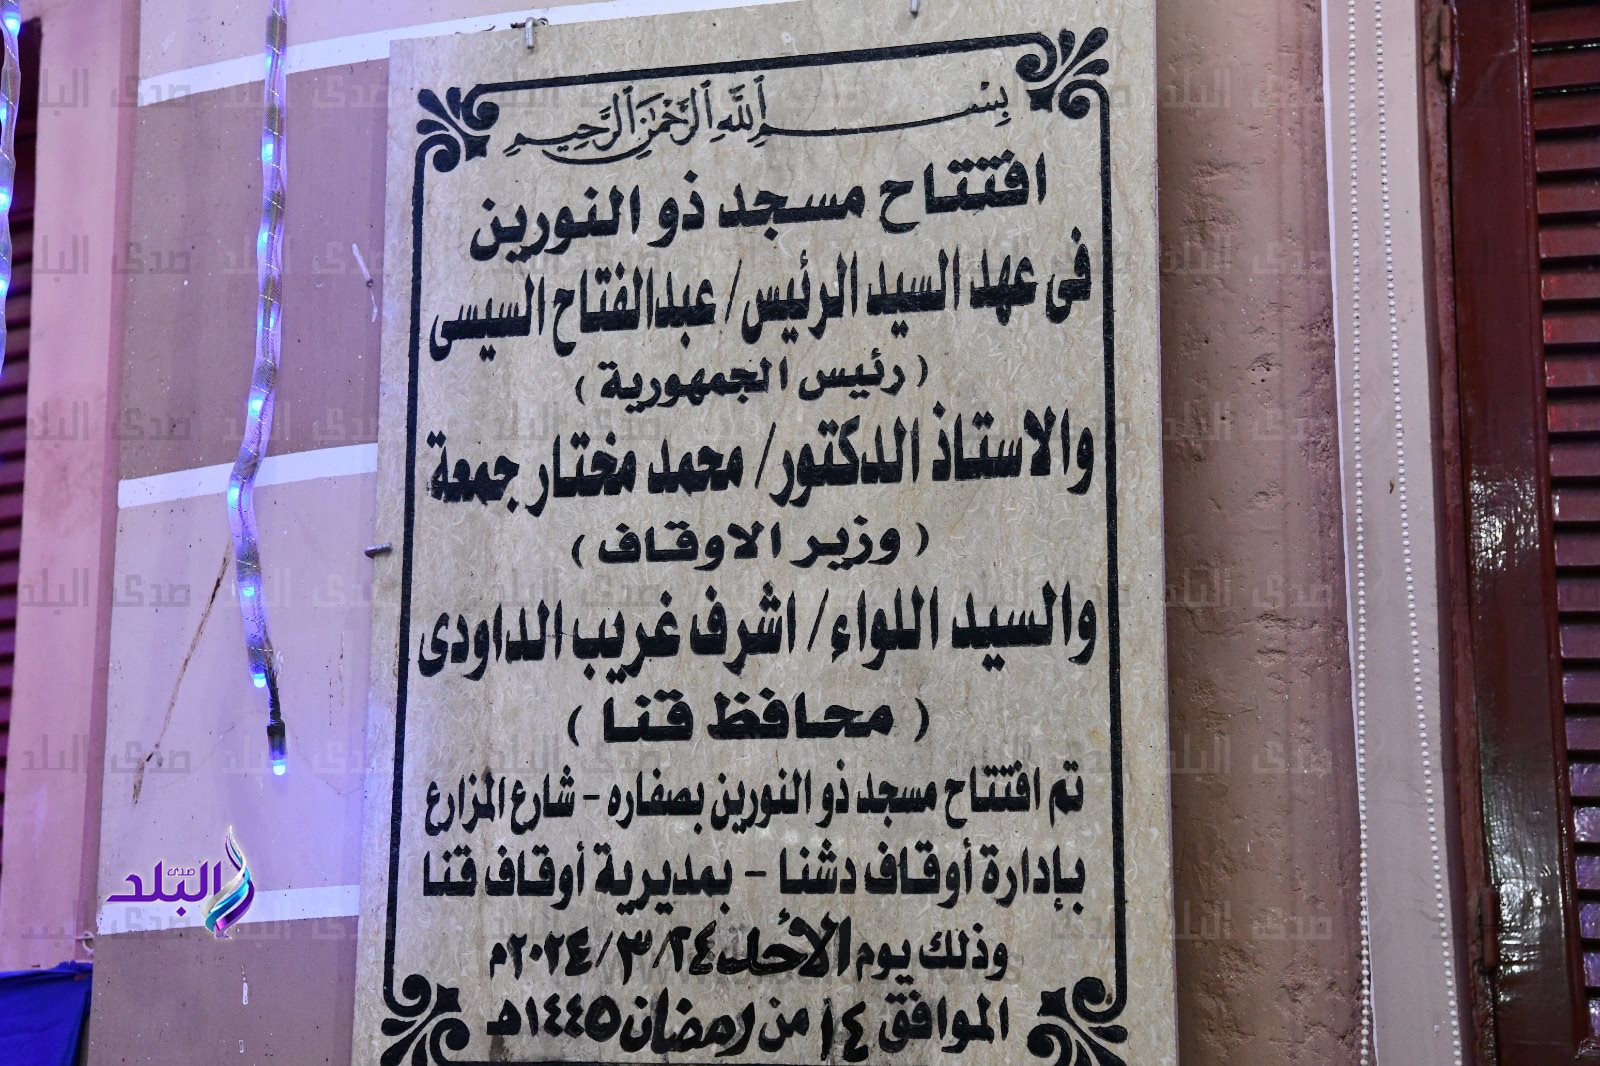 بِسْمِ اللَّهِ الرَّحْمَٰنِ الرَّحِيمِ
افتتاح مسجد ذو النورين
فى عهد السيد الرئيس / عبدالفتاح السيسى
( رئيس الجمهورية )
والاستاذ الدكتور / محمد مختار جمعة
( وزير الاوقاف )
والسيد اللواء / اشرف غريب الداودى
( محافظ قنا )
تم افتتاح مسجد ذو النورين بصفاره - شارع المزارع
بإدارة أوقاف دشنا - بمديرية أوقاف قنا
وذلك يوم الأحد ٢٤/٣/٢٠٢٤م
الموافق ١٤ من رمضان ١٤٤٥هـ
صدى البلد